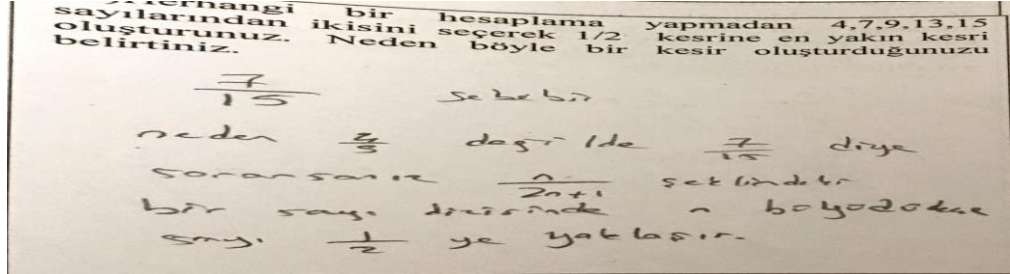 herhangi bir hesaplama yapmadan 4,7,9,13,15
sayılarından ikisini seçerek 1/2 kesrine en yakın kesri
oluşturunuz. Neden böyle bir kesir oluşturduğunuzu
belirtiniz.
7/15 sebebi
neden 4/9 değilde 7/15 diye
sorarsanız n/2n+1 şeklindeki
bir sayı dizisinde n büyüdükçe
sayı 1/2 ye yaklaşır.